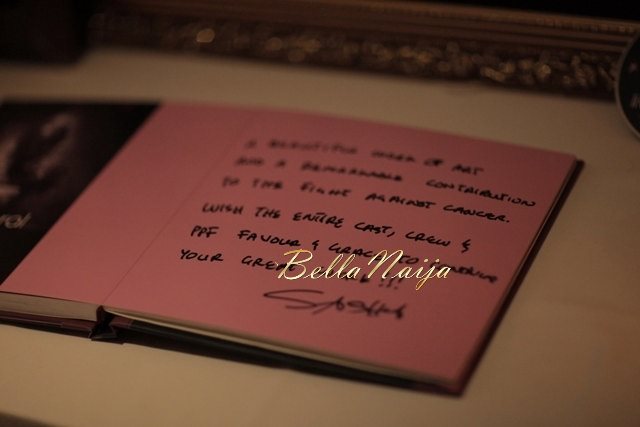 A BEAUTIFUL WORK OF ART
AND A REMARKABLE CONTRIBUTION
TO THE FIGHT AGAINST CANCER.
WISH THE ENTIRE CAST, CREW &
PPF FAVOUR & GRACE TO CONTINUE
YOUR GREAT WORK!!!
BellaNaija
rol